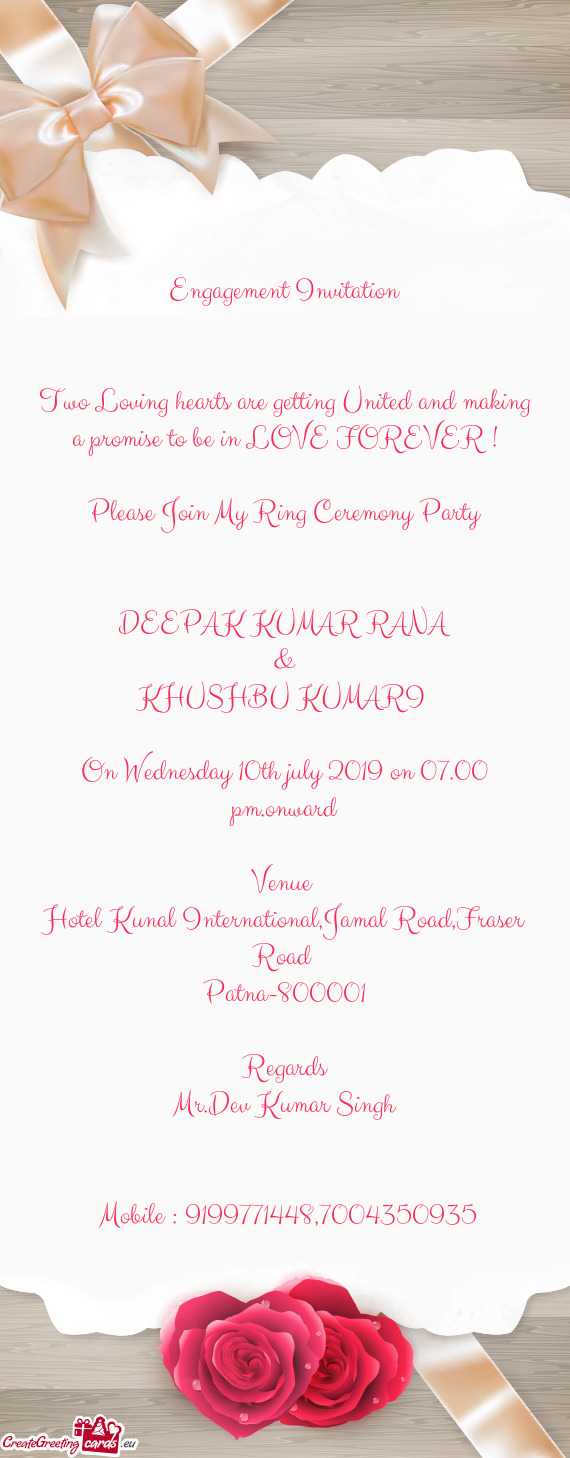 Engagement Invitation
Two Loving hearts are getting United and making
a promise to be in LOVE FOREVER !
Please Join My Ring Ceremony Party
DEEPAK KUMAR RANA
&
KHUSHBU KUMARI
On Wednesday 10th july 2019 on 07.00
pm.onward
Venue
Hotel Kunal International,Jamal Road,Fraser
Road
Patna-800001
Regards
Mr.Dev Kumar Singh
Mobile : 9199771448,7004350935
CreateGreeting cards .eu